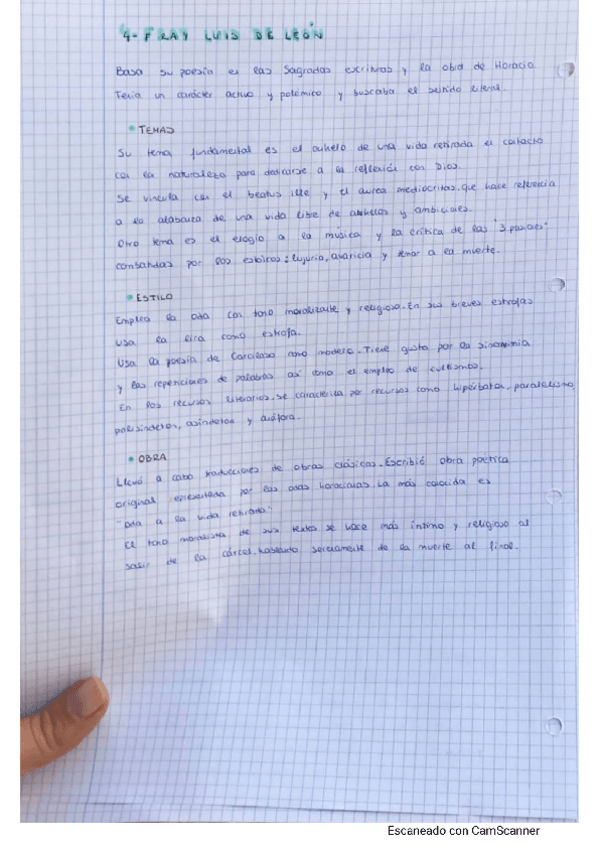 4- FRAY LUIS DE LEÓN
Basa su poesía en las Sagradas escrituras y la obra de Horacio.
Tenía un carácter activo y polémico y buscaba el sentido literal.
• TEMAS
Su tema fundamental es el anhelo de una vida retirada en contacto
con la naturaleza para dedicarse a la reflexión con Dios.
Se vincula con el beatus ille y el aurea mediocritas, que hace referencia
a la alabanza de una vida libre de anhelos y ambiciones.
Otro tema es el elogio a la música y la crítica de las "3 pasiones"
combatidas por los estoicos: lujuria, avaricia y temor a la muerte.
• ESTILO
Emplea la oda con tono moralizante y religioso. En sus breves estrofas
usa la lira como estrofa.
Usa la poesía de Garcilaso como modelo. Tiene gusto por la sinonimia
y las repeticiones de palabras así como el empleo de cultismos.
En los recursos literarios, se caracteriza por recursos como hipérbaton, paralelismo,
polisíndeton, asíndeton y anáfora.
• OBRA
Llevó a cabo traducciones de obras clásicas. Escribió obra poética
original por las odas horacianas. La más conocida es
"Oda a la vida retirada"
El tono moralista de sus textos se hace más íntimo y religioso al
salir de la cárcel, hablando serenamente de la muerte al final.
Escaneado con CamScanner